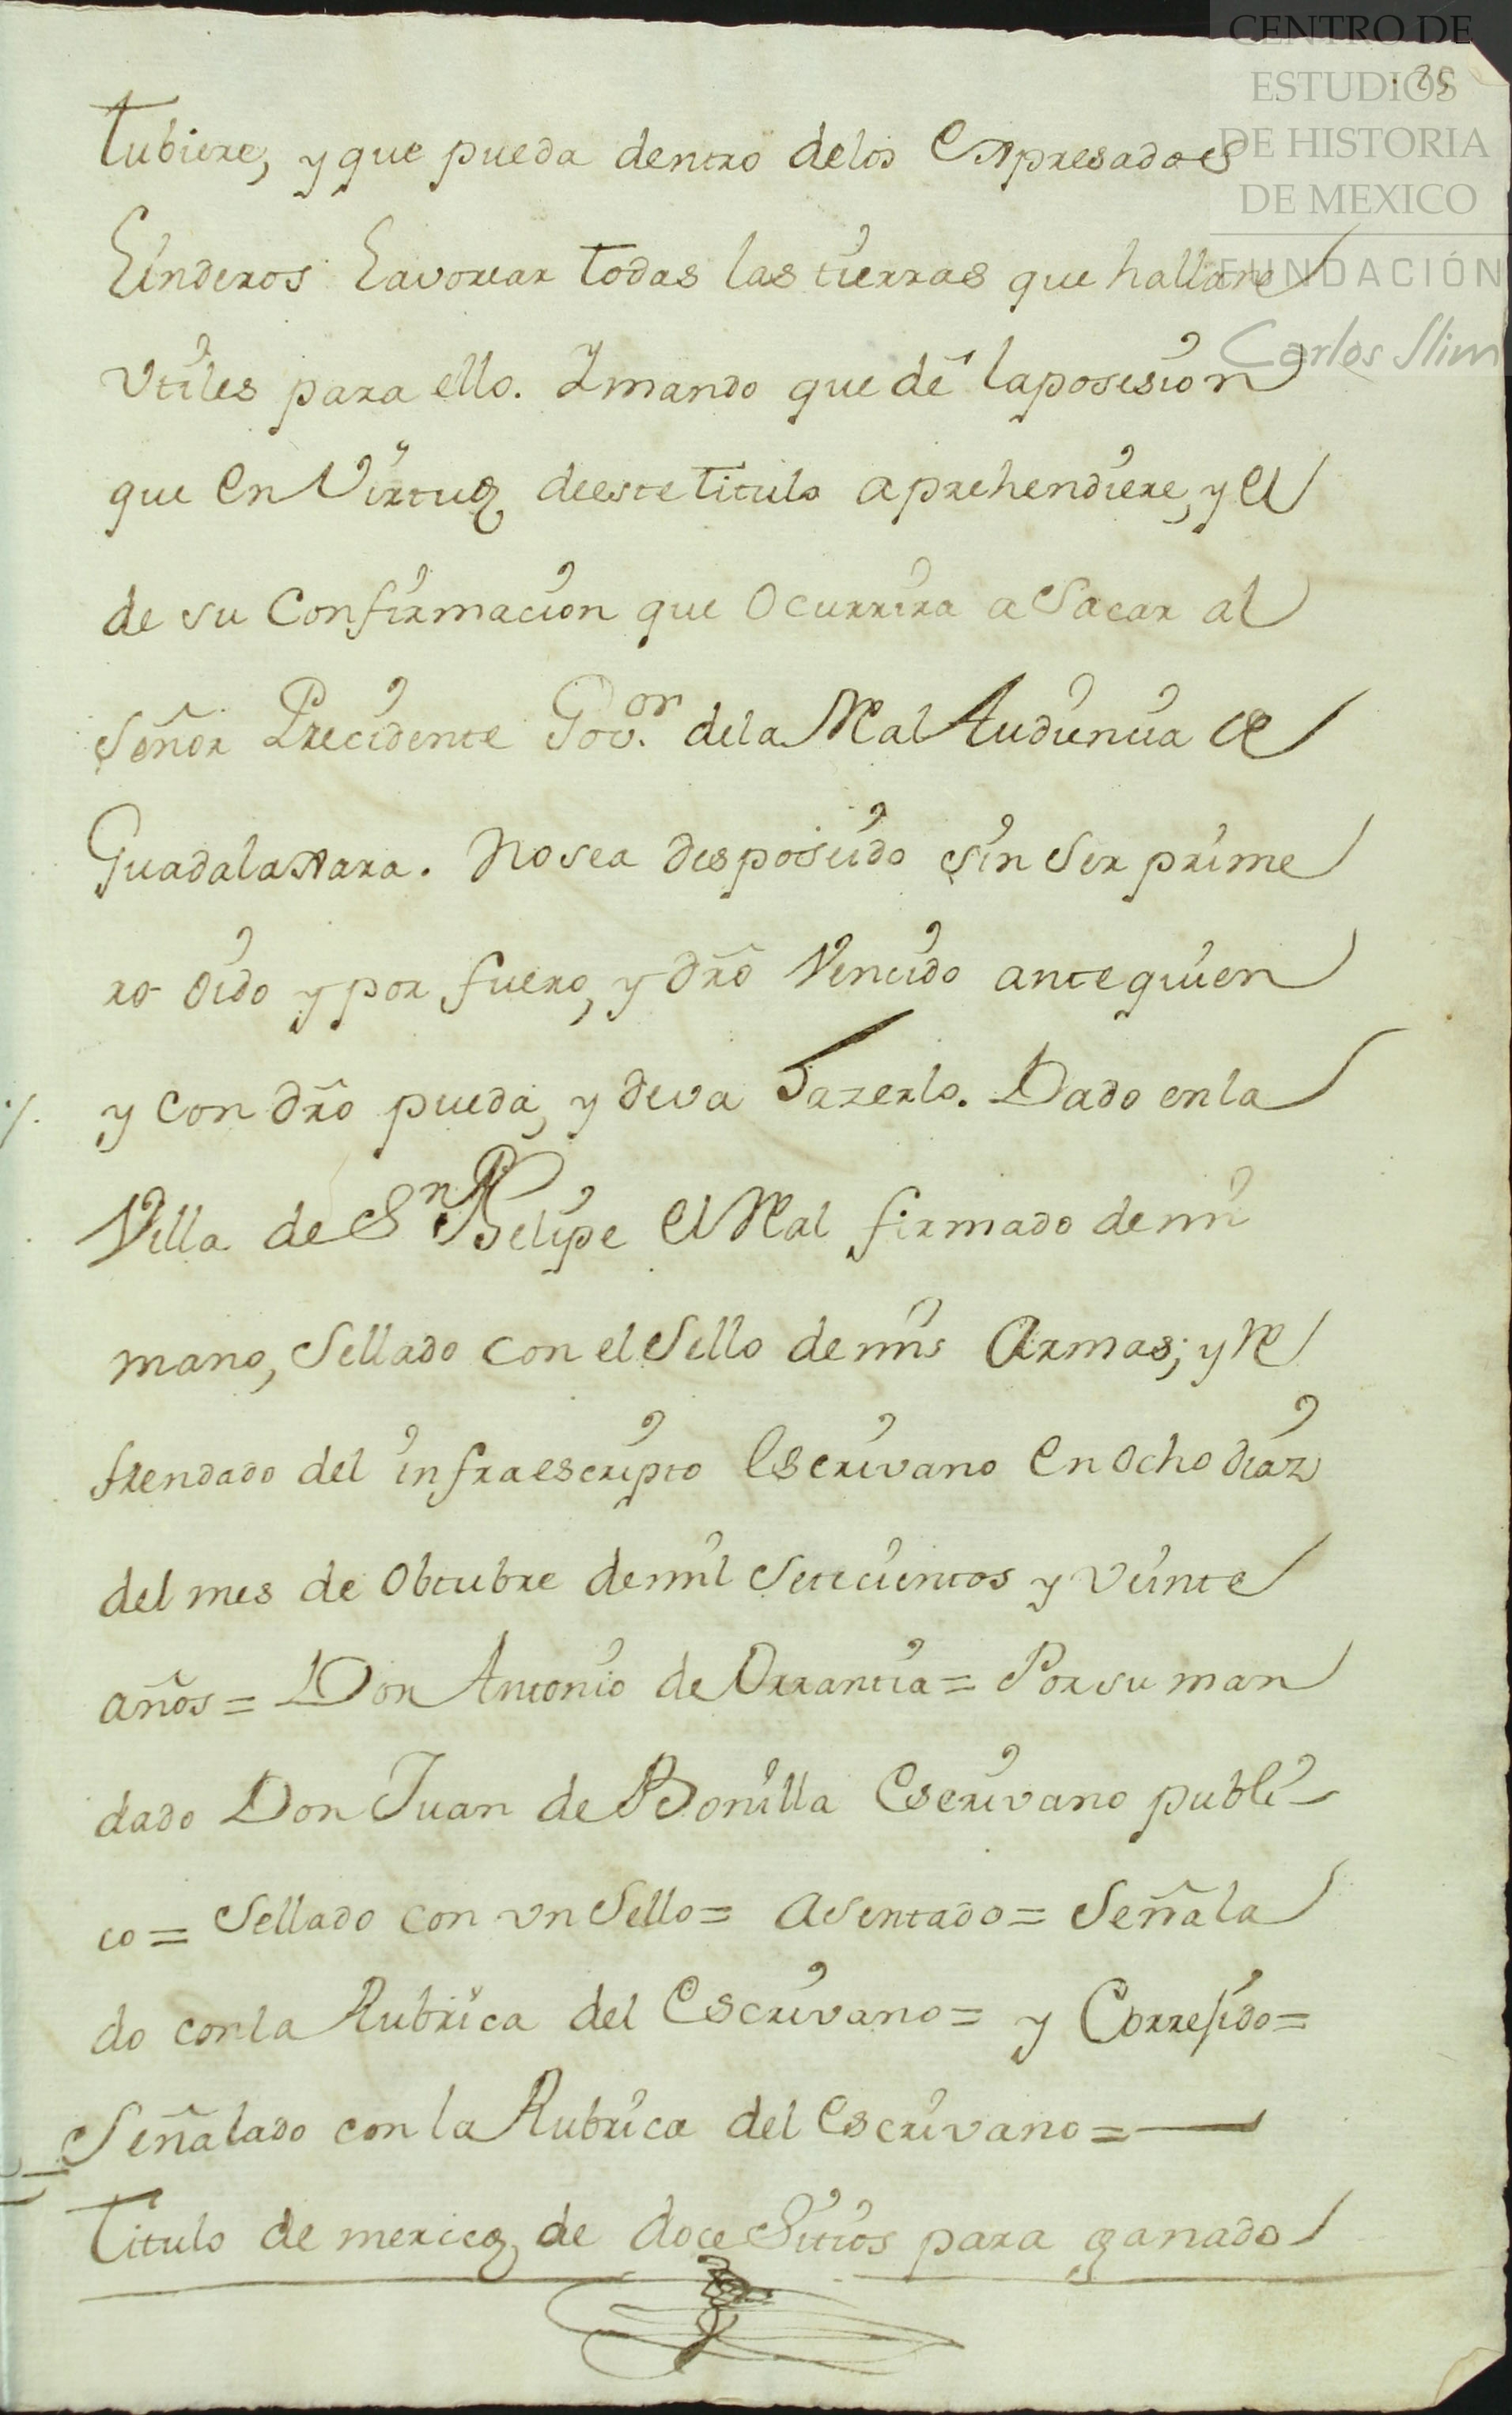 CENTRO DE
ESTUDIOS
DE HISTORIA
DE MEXICO
FUNDACIÓN
Carlos Slim
Tubiere, y que pueda dentro delos Expresados
Linderos Lavorear todas las tierras que hallare
Vtiles para ello. Y mando que dê laposesion
que en Virtud deeste titulo aprehendiere, y el
de su Confirmacion que Ocurrira a Sacar al
Señor Precidente Gov.or dela Real Audiencia de
Guadalaxara. No sea desposeido sin Ser prime
ro oido y por fuero, y dr̃o Vencido antequien
y con dr̃o pueda, y deva hazerlo. Dado enla
Villa de Sn Felipe el Real firmado de mi
mano, Sellado con el Sello de mis Armas; y Re
frendado del infraescripto Escrivano en ocho diaz
del mes de Obtubre de mil Setecientos y veinte
años = Don Antonio de Orrantia = Por su man
dado Don Juan de Bonilla Escrivano publi
co = Sellado con vn Sello = Asentado = Señala
do con la Rubrica del Escrivano = y Correjido =
Señalado con la Rubrica del Escrivano =
Titulo de merced, de doce Sitios para ganado